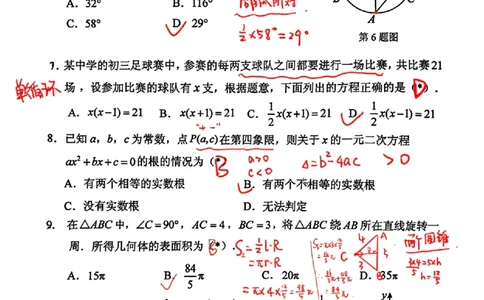 A. 32° B. 116°
C. 58° D. 29°
1/2×58°=29°
A
第 6 题图
7. 某中学的初三足球赛中，参赛的每两支球队之间都要进行一场比赛，共比赛21
单循环
场，设参加比赛的球队有 x 支，根据题意，下面列出的方程正确的是（*）.
D
A. x(x−1)=21 B. x(x+1)=21 C. 1/2 x(x+1)=21 D. 1/2 x(x−1)=21
8. 已知 a，b，c 为常数，点 P(a,c)在第四象限，则关于 x 的一元二次方程
"+ −"
ax²+bx+c=0的根的情况为（*）
B a>0 c<0 Δ=b²-4ac >0
A. 有两个相等的实数根 B. 有两个不相等的实数根
C. 没有实数根 D. 无法判定
9. 在△ABC中，∠C=90°，AC=4，BC=3，将△ABC绕AB所在直线旋转一
周．所得几何体的表面积为（*）.
B S=1/2 l·R
=πr·R
两个圆锥
A. 15π B. 84/5 π C. 20π D. 35π